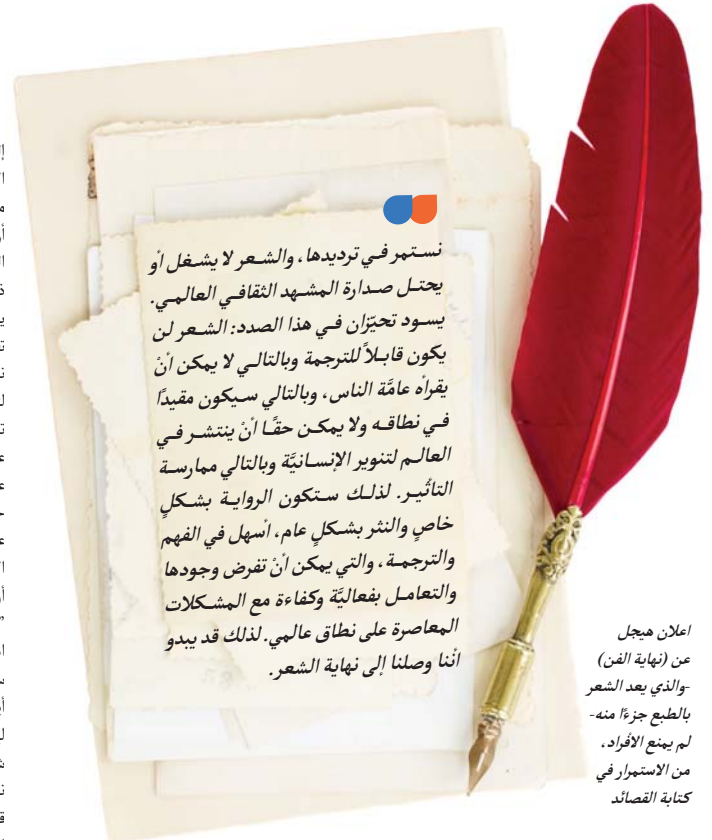 نستمر في ترديدها، والشعر لا يشغل أو
يحتل صدارة المشهد الثقافي العالمي.
يسود تحيّزان في هذا الصدد: الشعر لن
يكون قابلاً للترجمة وبالتالي لا يمكن أنْ
يقرأه عامَّة الناس، وبالتالي سيكون مقيدًا
في نطاقه ولا يمكن حقًّا أنْ ينتشر في
العالم لتنوير الإنسانيَّة وبالتالي ممارسة
التأثير. لذلك ستكون الرواية بشكلٍ
خاصٍ والنثر بشكلٍ عام، أسهل في الفهم
والترجمة، والتي يمكن أنْ تفرض وجودها
والتعامل بفعاليَّة وكفاءة مع المشكلات
المعاصرة على نطاق عالمي. لذلك قد يبدو
أننا وصلنا إلى نهاية الشعر.
اعلان هيجل
عن (نهاية الفن)
-والذي يعد الشعر
بالطبع جزءًا منه-
لم يمنع الأفراد،
من الاستمرار في
كتابة القصائد